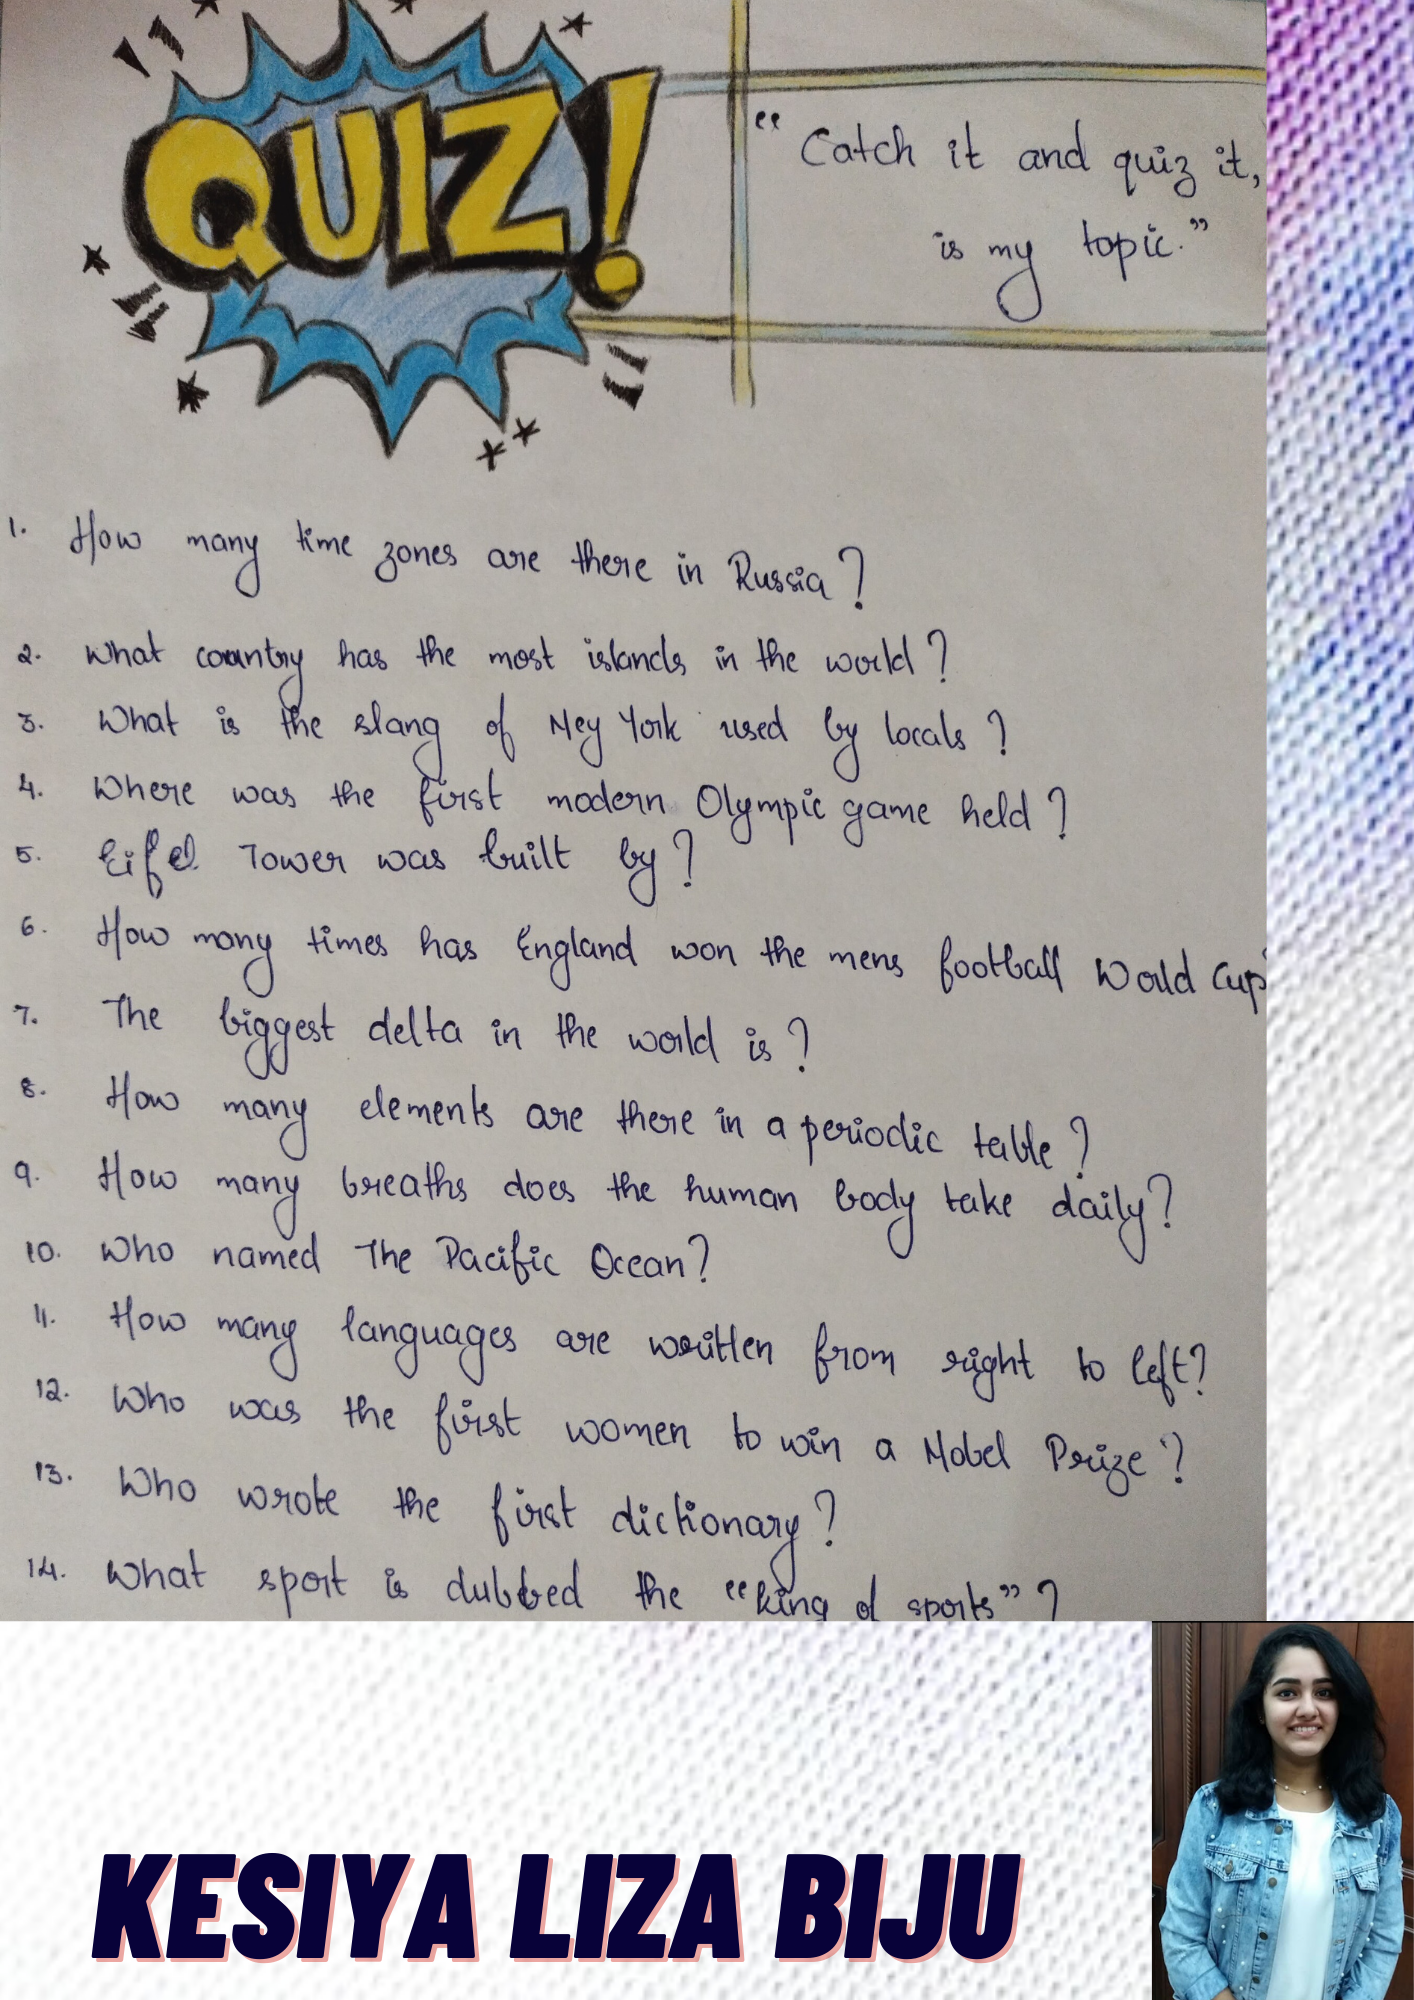 QUIZ!
“Catch it and quiz it,
is my topic.”
1. How many time zones are there in Russia?
2. What country has the most islands in the world?
3. What is the slang of Ney York used by locals?
4. Where was the first modern Olympic game held?
5. Eifel Tower was built by?
6. How many times has England won the mens football World Cup
7. The biggest delta in the world is?
8. How many elements are there in a periodic table?
9. How many breaths does the human body take daily?
10. Who named The Pacific Ocean?
11. How many languages are written from right to left?
12. Who was the first women to win a Nobel Prize?
13. Who wrote the first dictionary?
14. What sport is dubbed the “king of sports”?
KESIYA LIZA BIJU